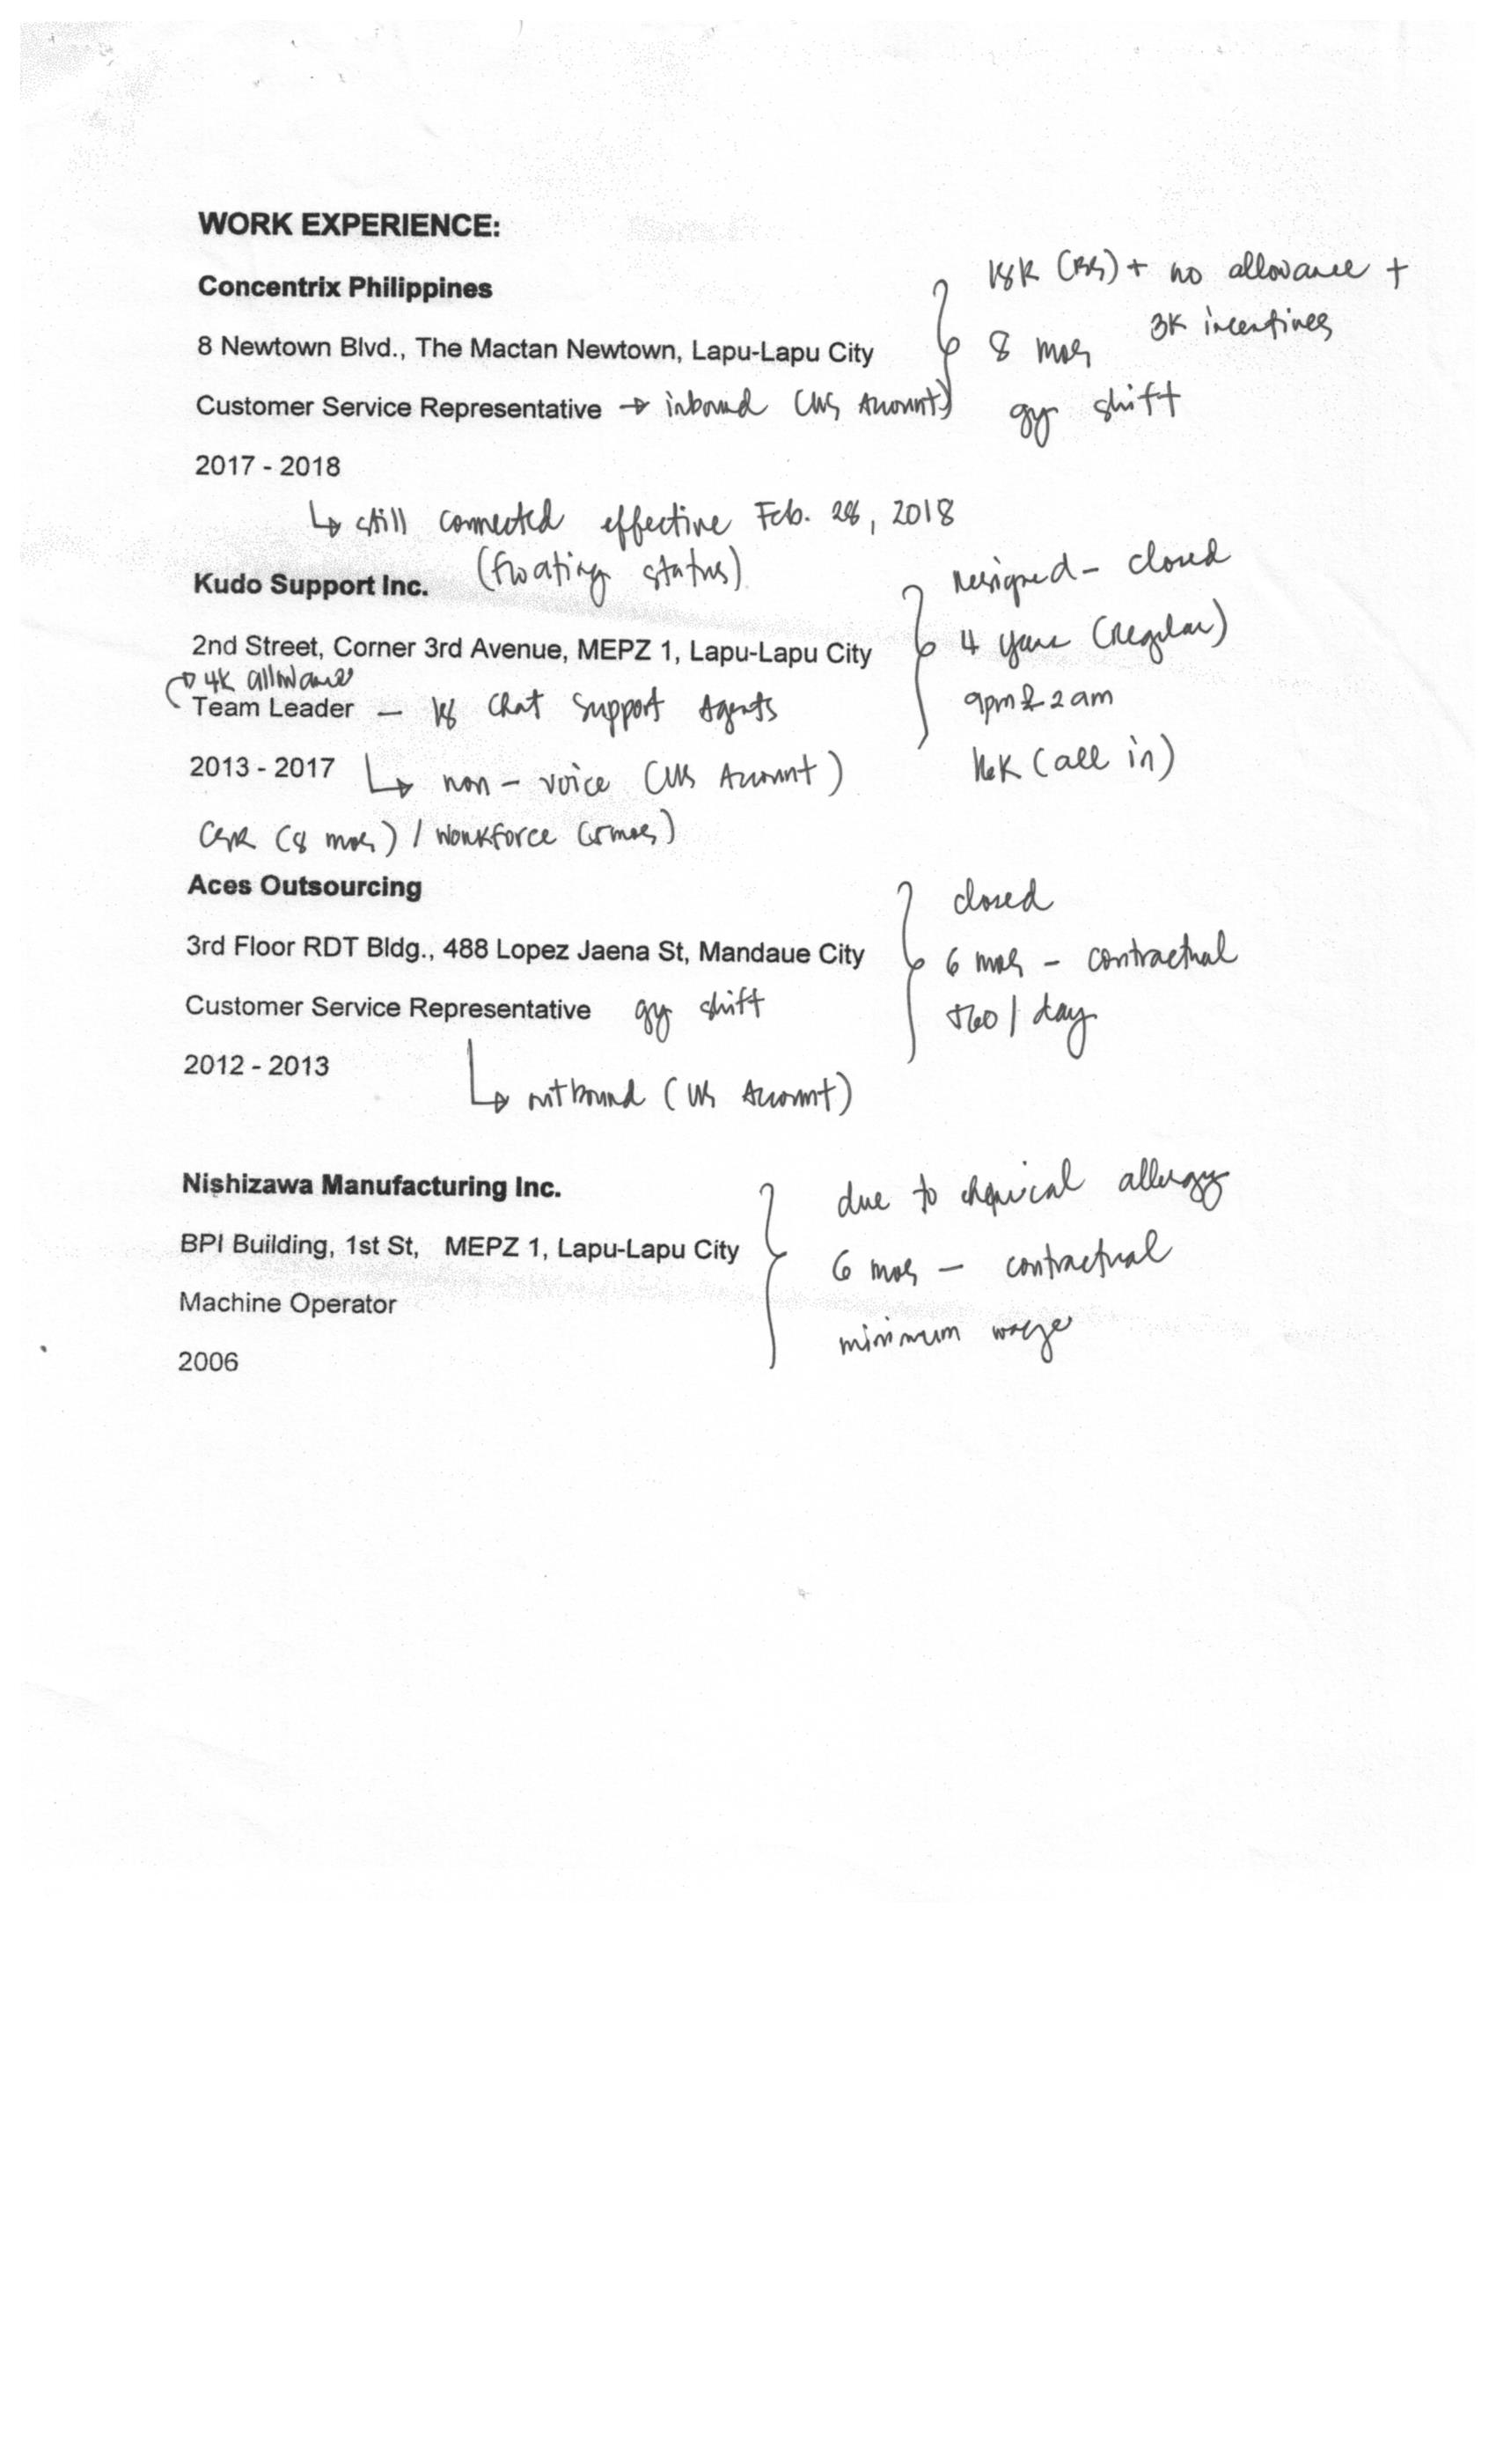 WORK EXPERIENCE:
Concentrix Philippines
18K (BS) + no allowance +
3K incentives
8 Newtown Blvd., The Mactan Newtown, Lapu-Lapu City
8 mos
Customer Service Representative → inbound (US Account)
gy shift
2017 - 2018
↳ still connected effective Feb. 28, 2018
(floating status)
Kudo Support Inc.
resigned - closed
2nd Street, Corner 3rd Avenue, MEPZ 1, Lapu-Lapu City
4 years (regular)
4K allowance
Team Leader — 18 Chat Support Agents
9pm & 2am
2013 - 2017 ↳ non - voice (US Account)
16K (all in)
CSR (8 mos) / Workforce (5mos)
Aces Outsourcing
closed
3rd Floor RDT Bldg., 488 Lopez Jaena St, Mandaue City
6 mos - contractual
Customer Service Representative gy shift
560 / day
2012 - 2013
↳ outbound (US Account)
Nishizawa Manufacturing Inc.
due to chemical allergy
BPI Building, 1st St, MEPZ 1, Lapu-Lapu City
6 mos - contractual
Machine Operator
minimum wage
2006